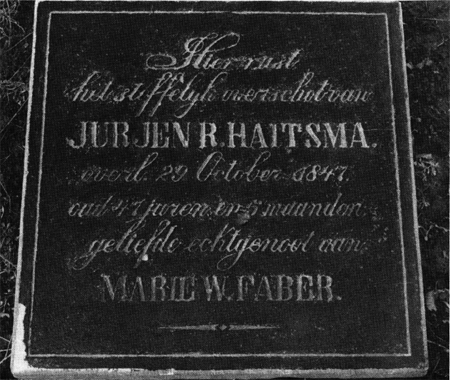 Hier rust
het stoffelyk overschot van
JURJEN R. HAITSMA.
overl. 29 October 1847.
oud 47 jaren en 5 maanden
geliefde echtgenoot van
MARIE W. FABER.